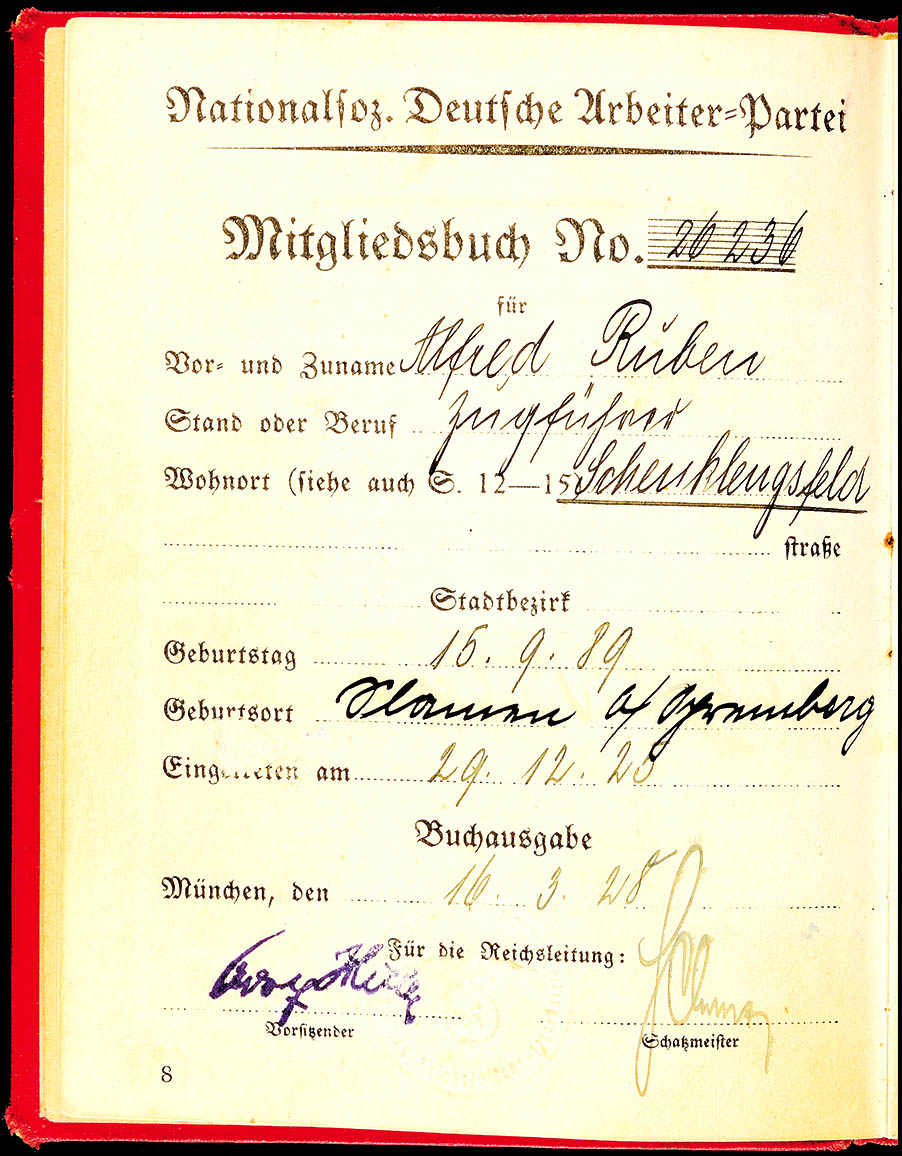 Nationalsoz. Deutsche Arbeiter-Partei
Mitgliedsbuch No. 26 236
für
Vor- und Zuname Alfred Ruben
Stand oder Beruf Zugführer
Wohnort (siehe auch S. 12—15) Schenklengsfeld
straße
Stadtbezirk
Geburtstag 15. 9. 89
Geburtsort Slamen a/ Spremberg
Eingetreten am 29. 12. 25
Buchausgabe
München, den 16. 3. 28
Für die Reichsleitung:
Vorsitzender
Schatzmeister
8